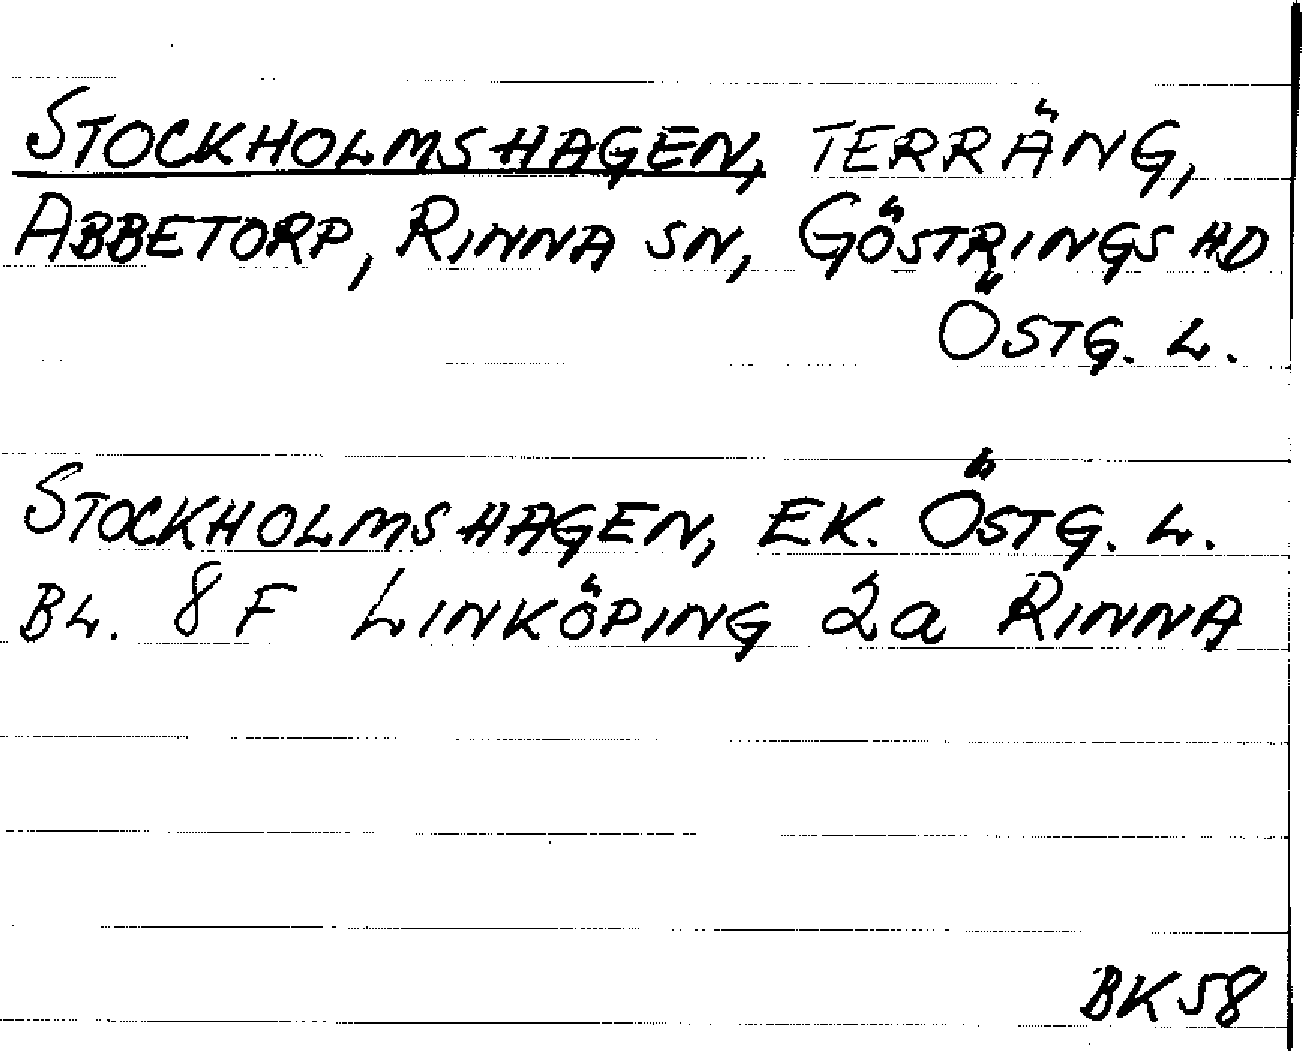 STOCKHOLMSHAGEN, TERRÄNG,
ABBETORP, RINNA SN, GÖSTRINGS HD
ÖSTG. L.
STOCKHOLMSHAGEN, EK. ÖSTG. L.
BL. 8 F LINKÖPING 2a RINNA
BK58